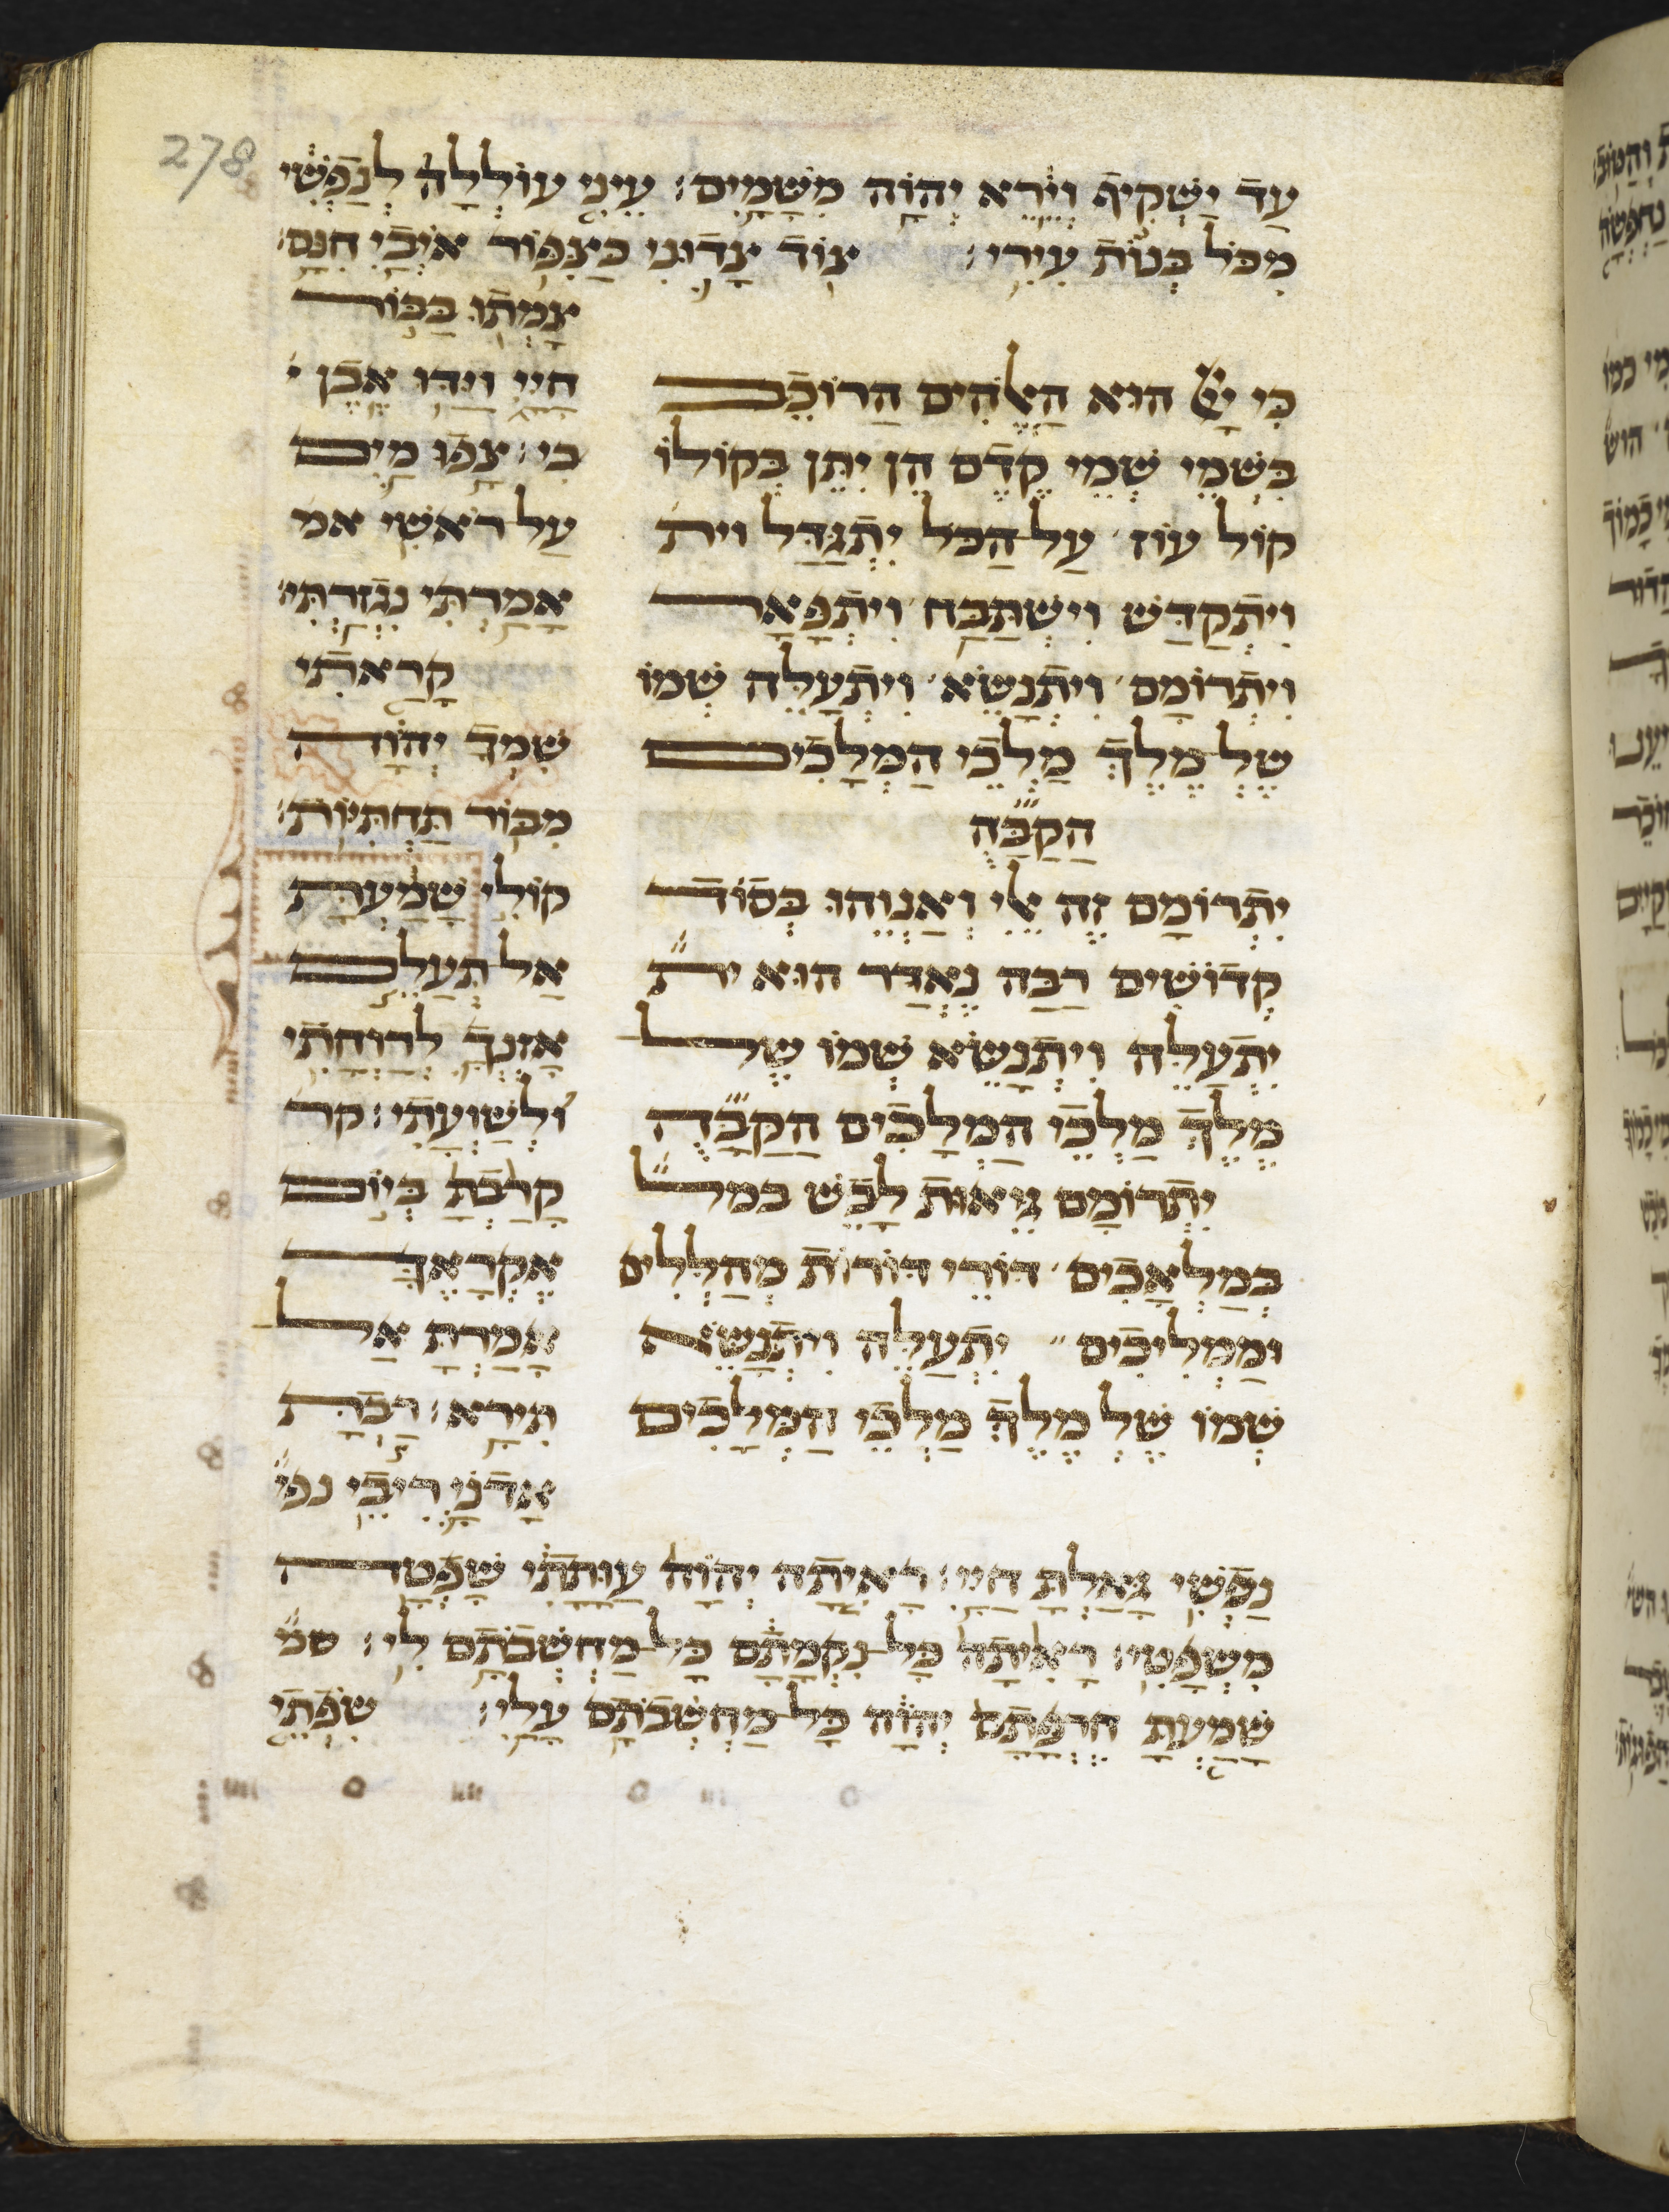 278
עד ישקיף וירא יהוה משמים׃ עיני עוללה לנפשי
מכל בנות עירי׃ צוד צדוני כצפור איבי חנם׃
כי יי הוא האלהים הרוכב
בשמי שמי קדם הן יתן בקולו
קול עוז על הכל יתגדל וית
ויתקדש וישתבח ויתפאר
ויתרומם ויתנשא ויתעלה שמו
של מלך מלכי המלכים
הקבה
יתרומם זה אלי ואנוהו בסוד
קדושים רבה נאדר הוא ית
יתעלה ויתנשא שמו של
מלך מלכי המלכים הקבה
יתרומם גאות לבש
במלאכים דורי דורות מהללים
וממליכים יתעלה ויתנשא
שמו של מלך מלכי המלכים
צמתו בבור
חיי וידו אבן י
בי׃ צפו מים
על ראשי אמ
אמרתי נגזרתי׃
קראתי
שמך יהוה
מבור תחתיות׃
קולי שמעת
אל תעלם
אזנך לרוחתי
ולשועתי׃ קר
קרבת ביום
אקראך
אמרת אל
תירא׃ רבת
אדני ריבי נפ
נפשי גאלת חיי׃ ראיתה יהוה עותתי שפטה
משפטי׃ ראיתה כל נקמתם כל מחשבתם לי׃ שמ
שמעת חרפתם יהוה כל מחשבתם עלי׃ שפתי